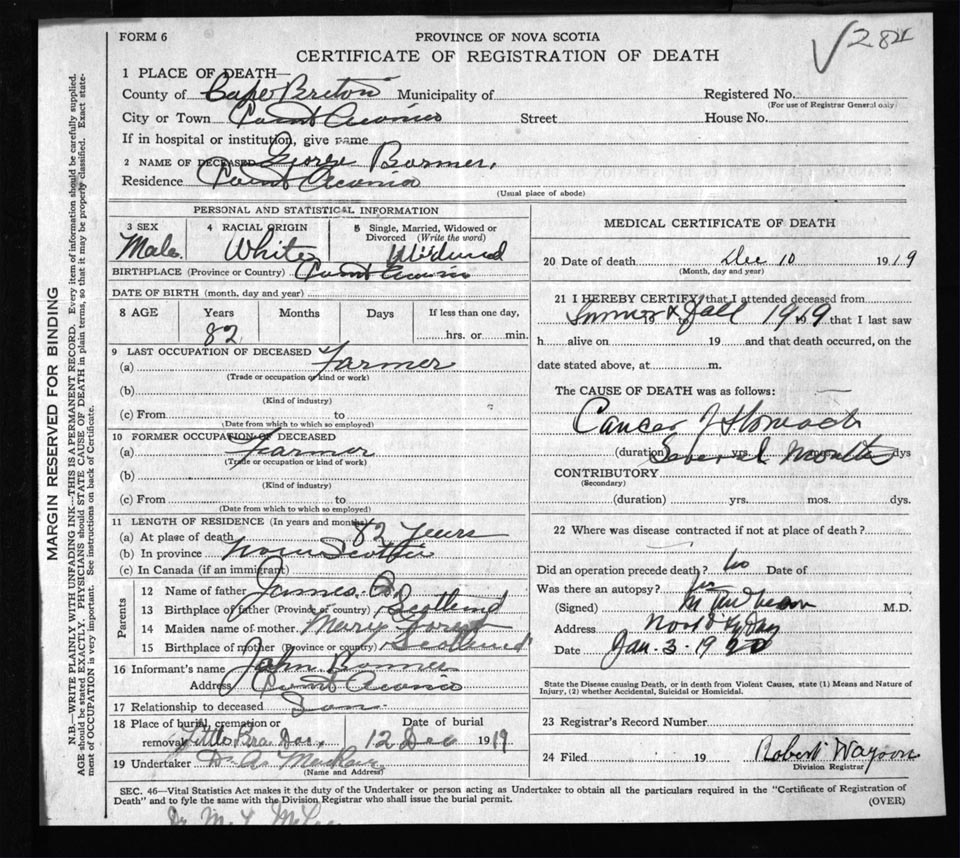 FORM 6
PROVINCE OF NOVA SCOTIA
CERTIFICATE OF REGISTRATION OF DEATH
√ 282
1 PLACE OF DEATH—
County of Cape Breton Municipality of
Registered No.
(For use of Registrar General only)
City or Town Point Aconia Street House No.
If in hospital or institution, give name
2 NAME OF DECEASED George Bonner.
Residence Point Aconia
(Usual place of abode)
PERSONAL AND STATISTICAL INFORMATION
3 SEX Male.
4 RACIAL ORIGIN White
5 Single, Married, Widowed or Divorced (Write the word) Widowed
BIRTHPLACE (Province or Country) Point Aconia
DATE OF BIRTH (month, day and year)
8 AGE Years Months Days If less than one day,
82 hrs. or min.
9 LAST OCCUPATION OF DECEASED
(a) Farmer
(Trade or occupation or kind or work)
(b)
(Kind of industry)
(c) From to
(Date from which to which so employed)
10 FORMER OCCUPATION OF DECEASED
(a) Farmer
(Trade or occupation or kind of work)
(b)
(Kind of industry)
(c) From to
(Date from which to which so employed)
11 LENGTH OF RESIDENCE (In years and months)
(a) At place of death 82 years
(b) In province Nova Scotia
(c) In Canada (if an immigrant)
Parents
12 Name of father James B.
13 Birthplace of father (Province or country) Scotland
14 Maiden name of mother Mary
15 Birthplace of mother (Province or country) Scotland
16 Informant's name John Bonner
Address Point Aconia
17 Relationship to deceased Son
18 Place of burial, cremation or removal Little Bra Dor. Date of burial 12 Dec 1919
19 Undertaker
(Name and Address)
MEDICAL CERTIFICATE OF DEATH
20 Date of death Dec 10 1919
(Month, day and year)
21 I HEREBY CERTIFY that I attended deceased from
Summer & Fall 1919 that I last saw
h alive on 19 and that death occurred, on the
date stated above, at m.
The CAUSE OF DEATH was as follows:
Cancer of Stomach
(duration) Several yrs. Months dys
CONTRIBUTORY
(Secondary)
(duration) yrs. mos. dys.
22 Where was disease contracted if not at place of death?
Did an operation precede death? No Date of
Was there an autopsy?
(Signed) M.D.
Address
Date Jan. 3. 1920
State the Disease causing Death, or in death from Violent Causes, state (1) Means and Nature of
Injury, (2) whether Accidental, Suicidal or Homicidal.
23 Registrar's Record Number
24 Filed 19 Robert
Division Registrar
SEC. 46—Vital Statistics Act makes it the duty of the Undertaker or person acting as Undertaker to obtain all the particulars required in the "Certificate of Registration of
Death" and to fyle the same with the Division Registrar who shall issue the burial permit.
(OVER)
Dr. M. T.
MARGIN RESERVED FOR BINDING
N.B.—WRITE PLAINLY WITH UNFADING INK—THIS IS A PERMANENT RECORD. Every item of information should be carefully supplied.
AGE should be stated EXACTLY. PHYSICIANS should STATE CAUSE OF DEATH in plain terms, so that it may be properly classified. Exact state-
ment of OCCUPATION is very important. See instructions on back of Certificate.